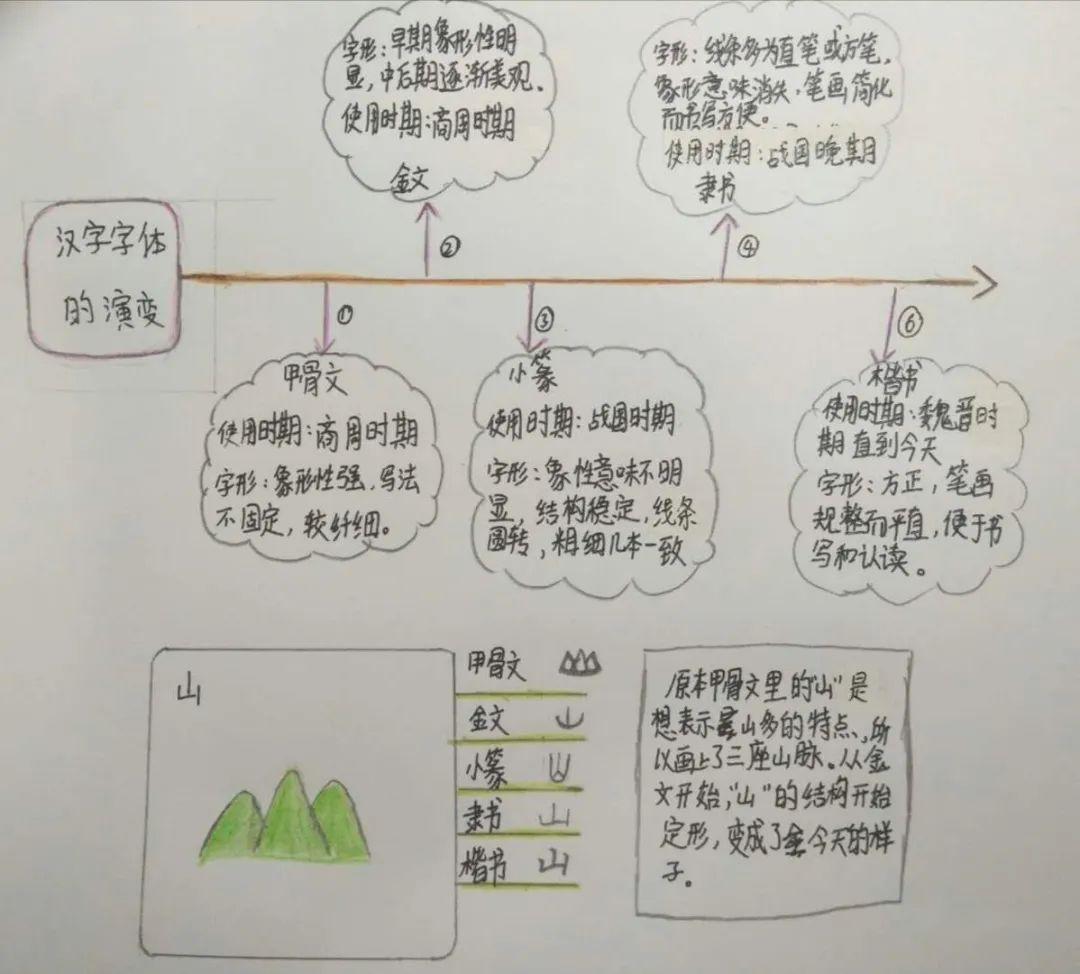 汉字字体
的演变
字形：早期象形性明
显，中后期逐渐美观。
使用时期：商周时期
金文
②
字形：线条多为直笔或方笔，
象形意味消失，笔画简化
而书写方便。
使用时期：战国晚期
隶书
④
①
甲骨文
使用时期：商周时期
字形：象形性强，写法
不固定，较纤细。
③
小篆
使用时期：战国时期
字形：象性意味不明
显，结构稳定，线条
圆转，粗细几本一致
⑥
楷书
使用时期：魏晋时
期直到今天
字形：方正，笔画
规整而平直，便于书
写和认读。
山
甲骨文
金文 山
小篆 山
隶书 山
楷书 山
原本甲骨文里的“山”是
想表示山多的特点，所
以画上了三座山脉。从金
文开始，“山”的结构开始
定形，变成了今天的样
子。